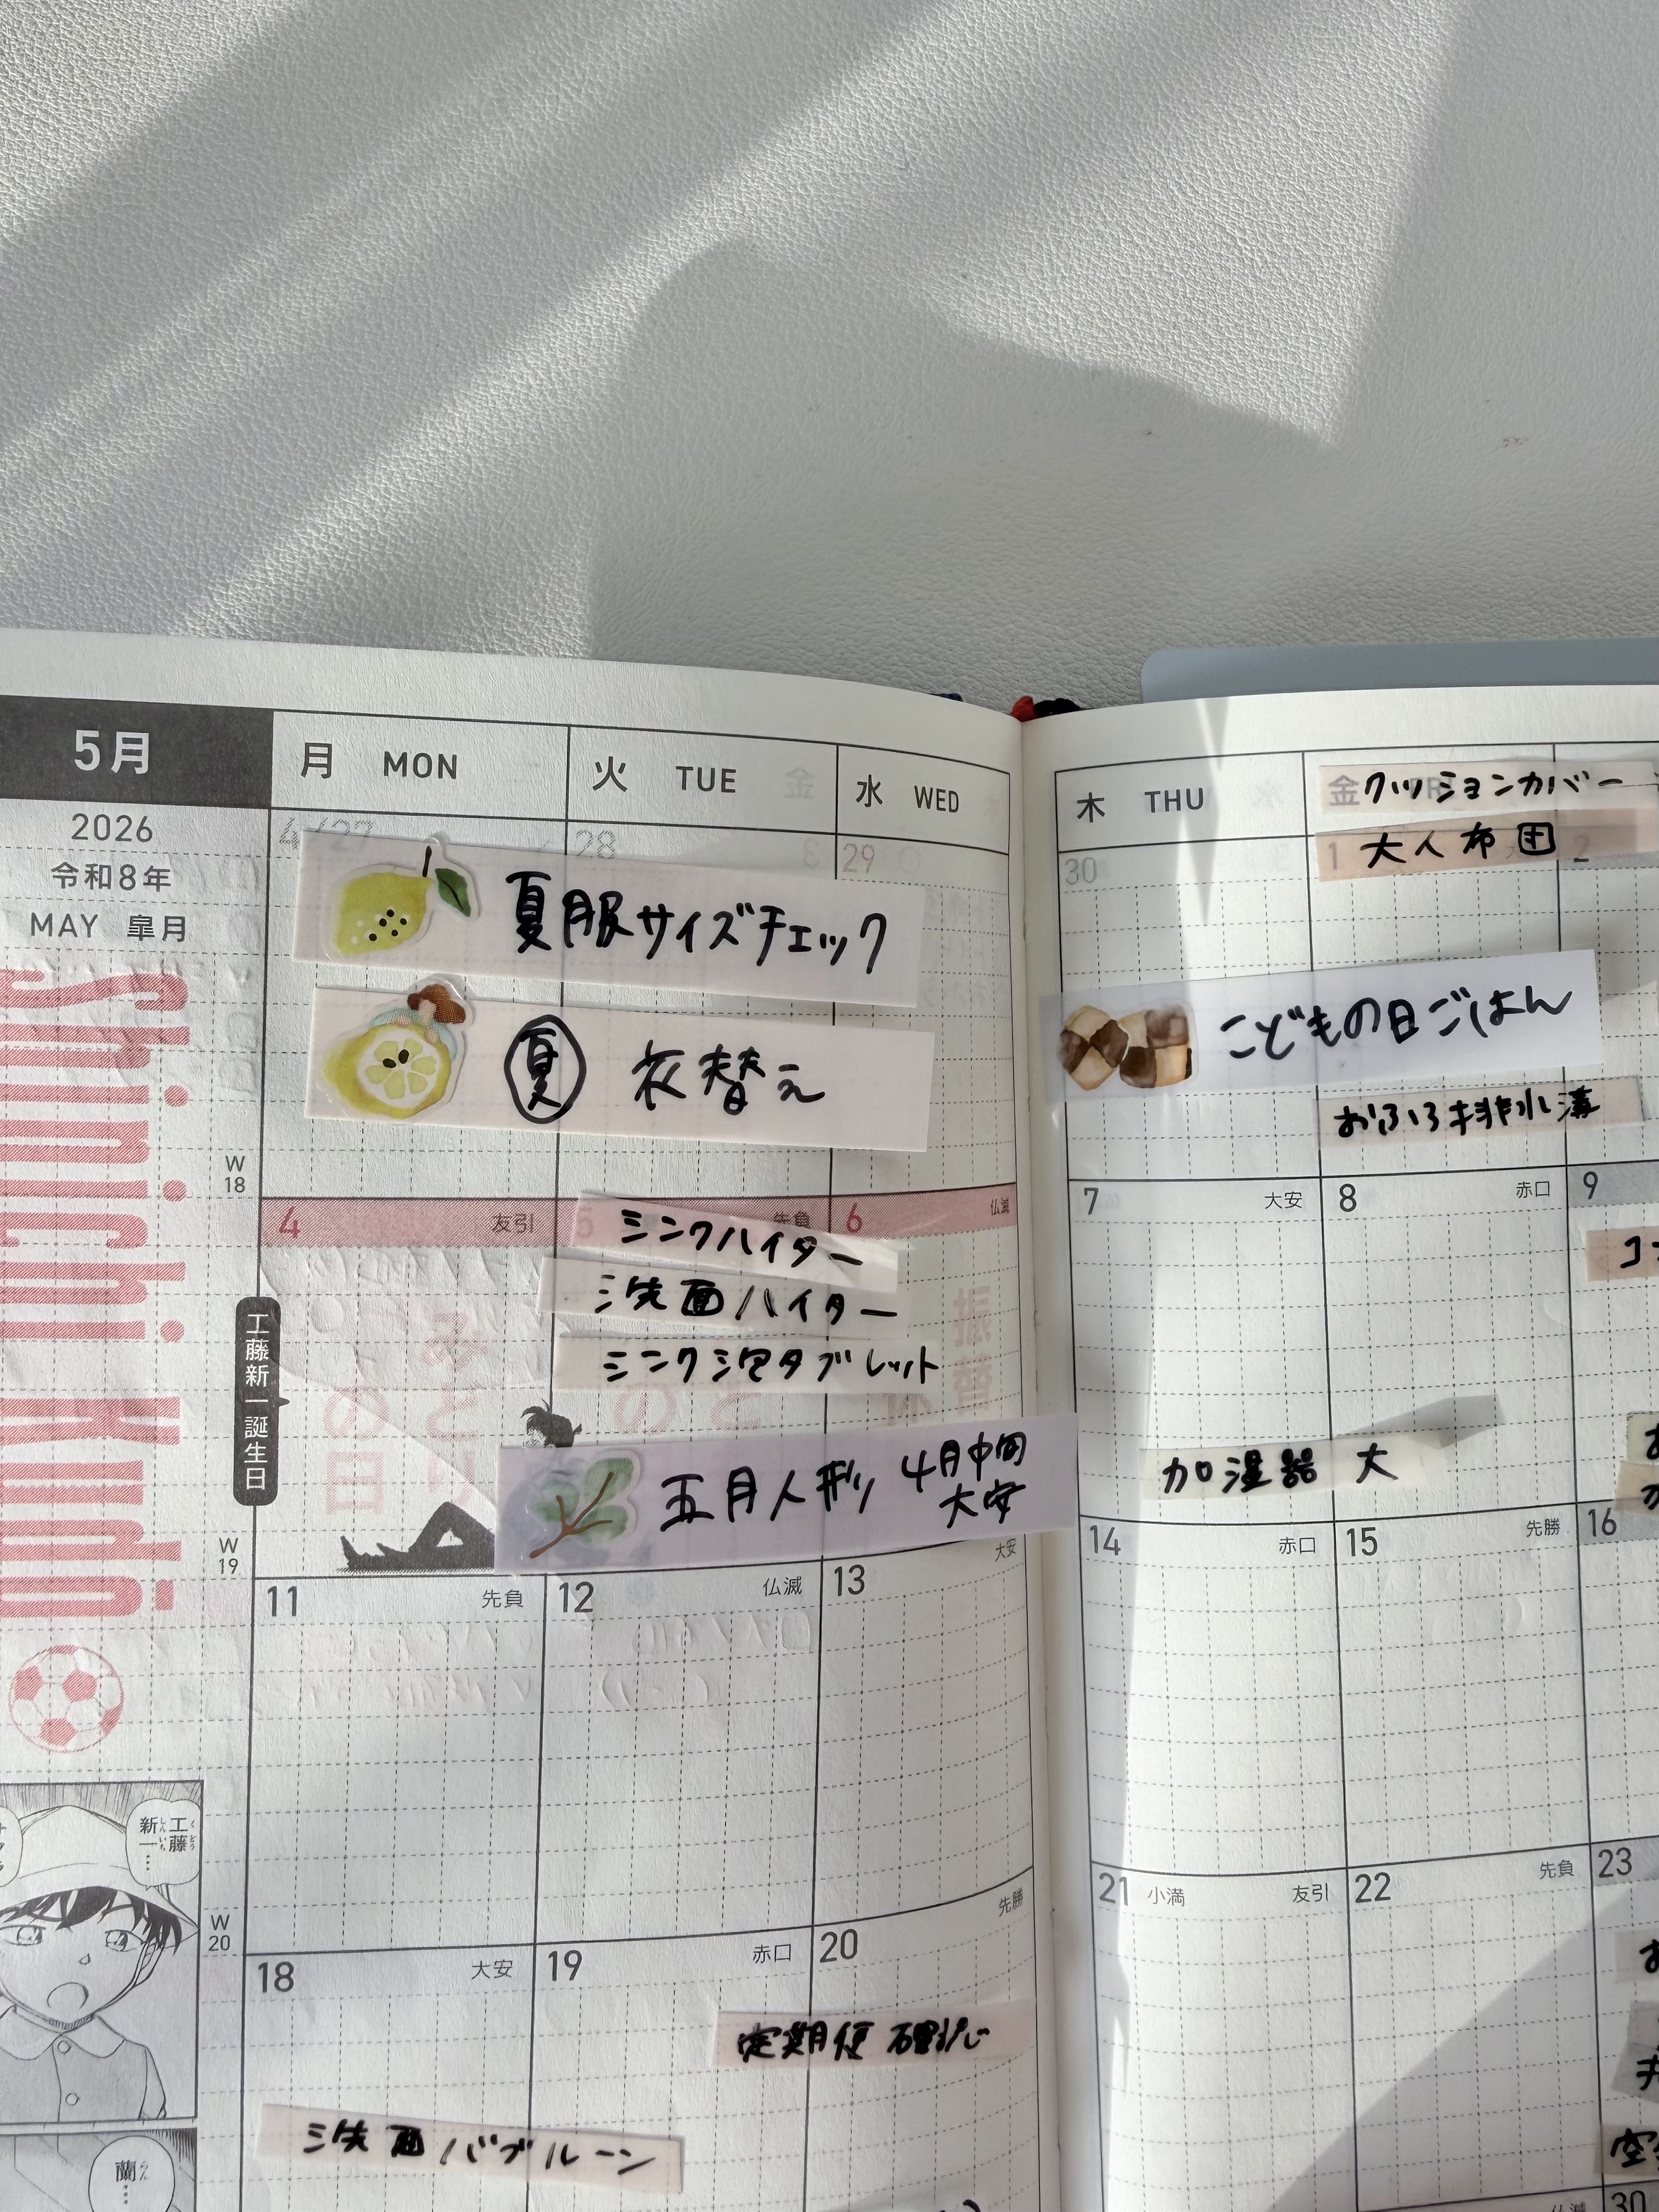 5月
2026
令和8年
MAY 皐月
Shinichi Kudo
工藤新一誕生日
月 MON
火 TUE
水 WED
木 THU
金
クッションカバー
大人布団
4/27
28
29
30
1
2
夏服サイズチェック
夏 衣替え
こどもの日ごはん
おふろ排水溝
W
18
4 友引
5 先負
6 仏滅
7 大安
8 赤口
9
シンクハイター
洗面ハイター
シンク泡タブレット
五月人形 4月中旬
大安
加湿器 大
W
19
11 先負
12 仏滅
13 大安
14 赤口
15 先勝
16
工藤
くどう
新一…
しんいち
W
20
18 大安
19 赤口
20 先勝
21 小満 友引
22 先負
23
定期便
洗面バブルーン
蘭…
30
仏滅